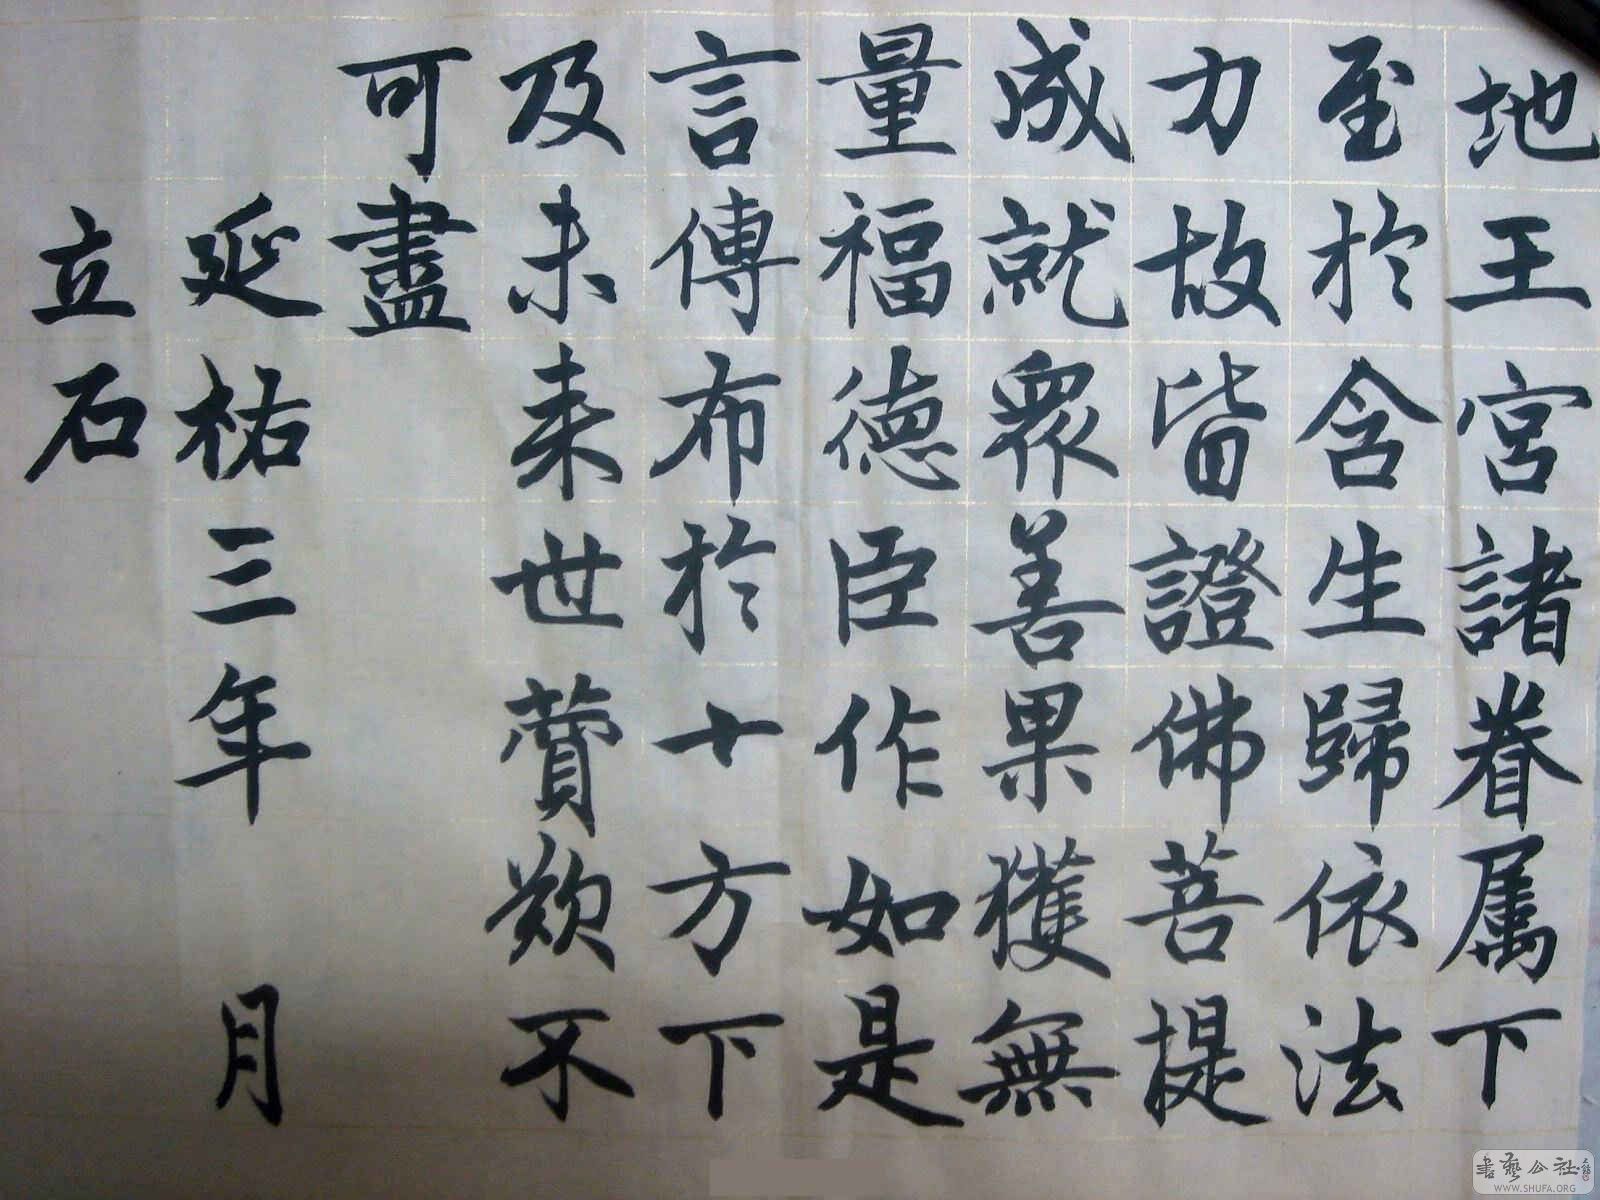 地王宮諸眷属下
至於含生歸依法
力故皆證佛菩提
成就衆善果獲無
量福德臣作如是
言傳布於十方下
及未来世賛歎不
可盡
延祐三年 月
立石
書藝公社
WWW.SHUFA.ORG